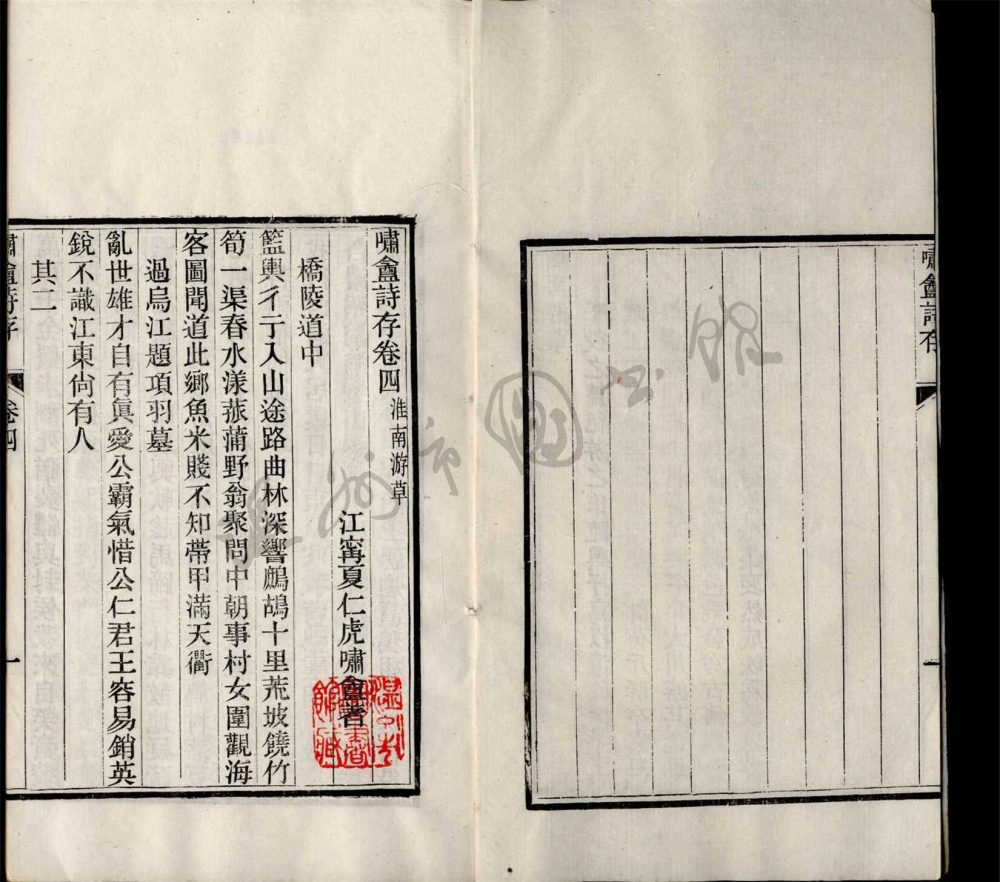 嘯盦詩存
一
嘯盦詩存卷四 淮南游草
江寧夏仁虎嘯盦著
橋陵道中
籃輿彳亍入山途路曲林深響鷓鴣十里荒坡饒竹
筍一渠春水漾菰蒲野翁聚問中朝事村女圍觀海
客圖聞道此鄉魚米賤不知帶甲滿天衢
過烏江題項羽墓
亂世雄才自有眞愛公霸氣惜公仁君王容易銷英
銳不識江東尙有人
其二
嘯盦詩存 卷四 一
温州市圖书館